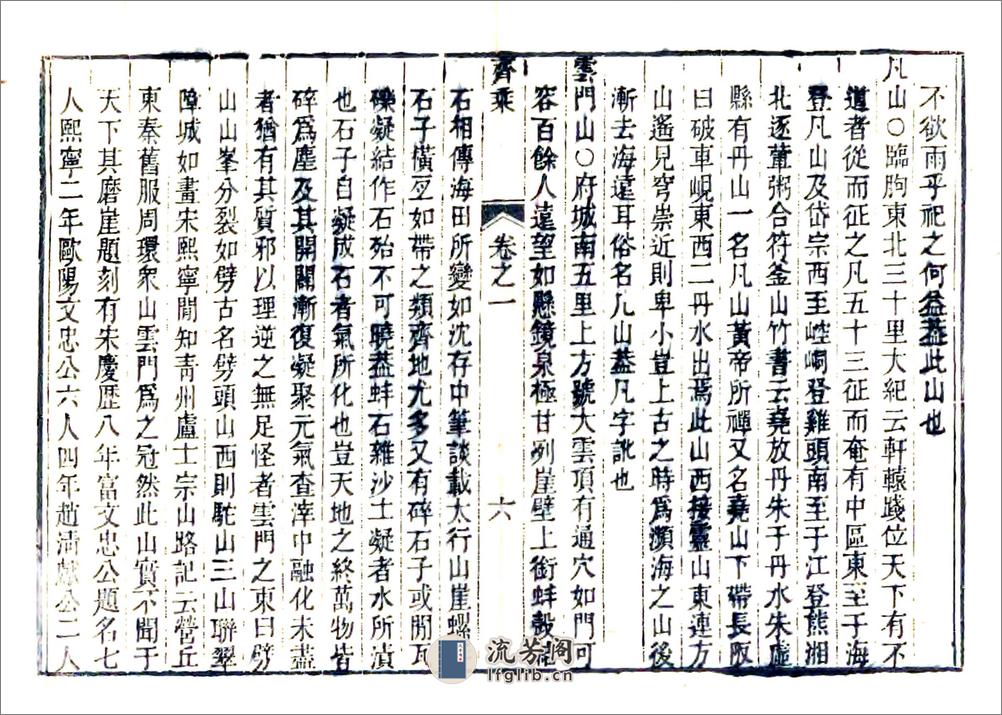 不欲雨乎祀之何益蓋此山也
凡山○臨朐東北三十里大紀云軒轅踐位天下有不
道者從而征之凡五十三征而奄有中區東至于海
登凡山及岱宗西至崆峒登雞頭南至于江登熊湘
北逐葷粥合符釜山竹書云堯放丹朱于丹水朱虛
縣有丹山一名凡山黃帝所禪又名堯山下帶長阪
曰破車峴東西二丹水出焉此山西接靈山東連方
山遙見穹崇近則卑小豈上古之時爲瀕海之山後
漸去海遠耳俗名几山蓋凡字訛也
雲門山○府城南五里上方號大雲頂有通穴如門可
容百餘人遠望如懸鏡泉極甘冽崖壁上銜蚌殼
齊乘
卷之一
六
石相傳海田所變如沈存中筆談載太行山崖螺
石子橫亙如帶之類齊地尤多又有碎石子或閒瓦
礫凝結作石殆不可曉蓋蚌石雜沙土凝者水所漬
也石子自凝成石者氣所化也豈天地之終萬物皆
碎爲塵及其開闢漸復凝聚元氣查滓中融化未盡
者猶有其質邪以理逆之無足怪者雲門之東曰劈
山山峯分裂如劈古名劈頭山西則駝山三山聯翠
障城如畫宋熙寧閒知靑州盧士宗山路記云營丘
東秦舊服周環衆山雲門爲之冠然此山實不聞于
天下其磨崖題刻有宋慶歷八年富文忠公題名七
人熙寧二年歐陽文忠公六人四年趙淸獻公二人
流芳阁
lfglib.cn